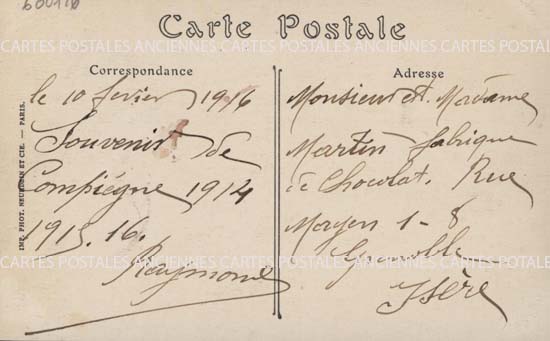 Carte Postale
CARTES POSTALES ANCIENNES CARTES POSTALES ANCIENNES CARTES POSTALES
Correspondance
le 10 fevier 1916
Souvenir de
Compiégne 1914
1915.16.
Raymond
IMP. PHOT. NEURDEIN ET CIE. — PARIS.
Adresse
Monsieur et. Madame
Martin fabrique
de Chocolat. Rue
Moyen 1-8
Grenoble
Isère
CARTES POSTALES ANCIENNES CARTES POSTALES ANCIENNES CARTES POSTALES